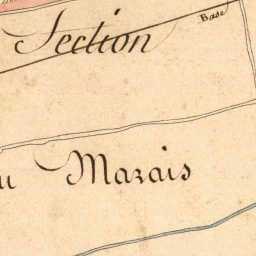 Section
Base
u Marais